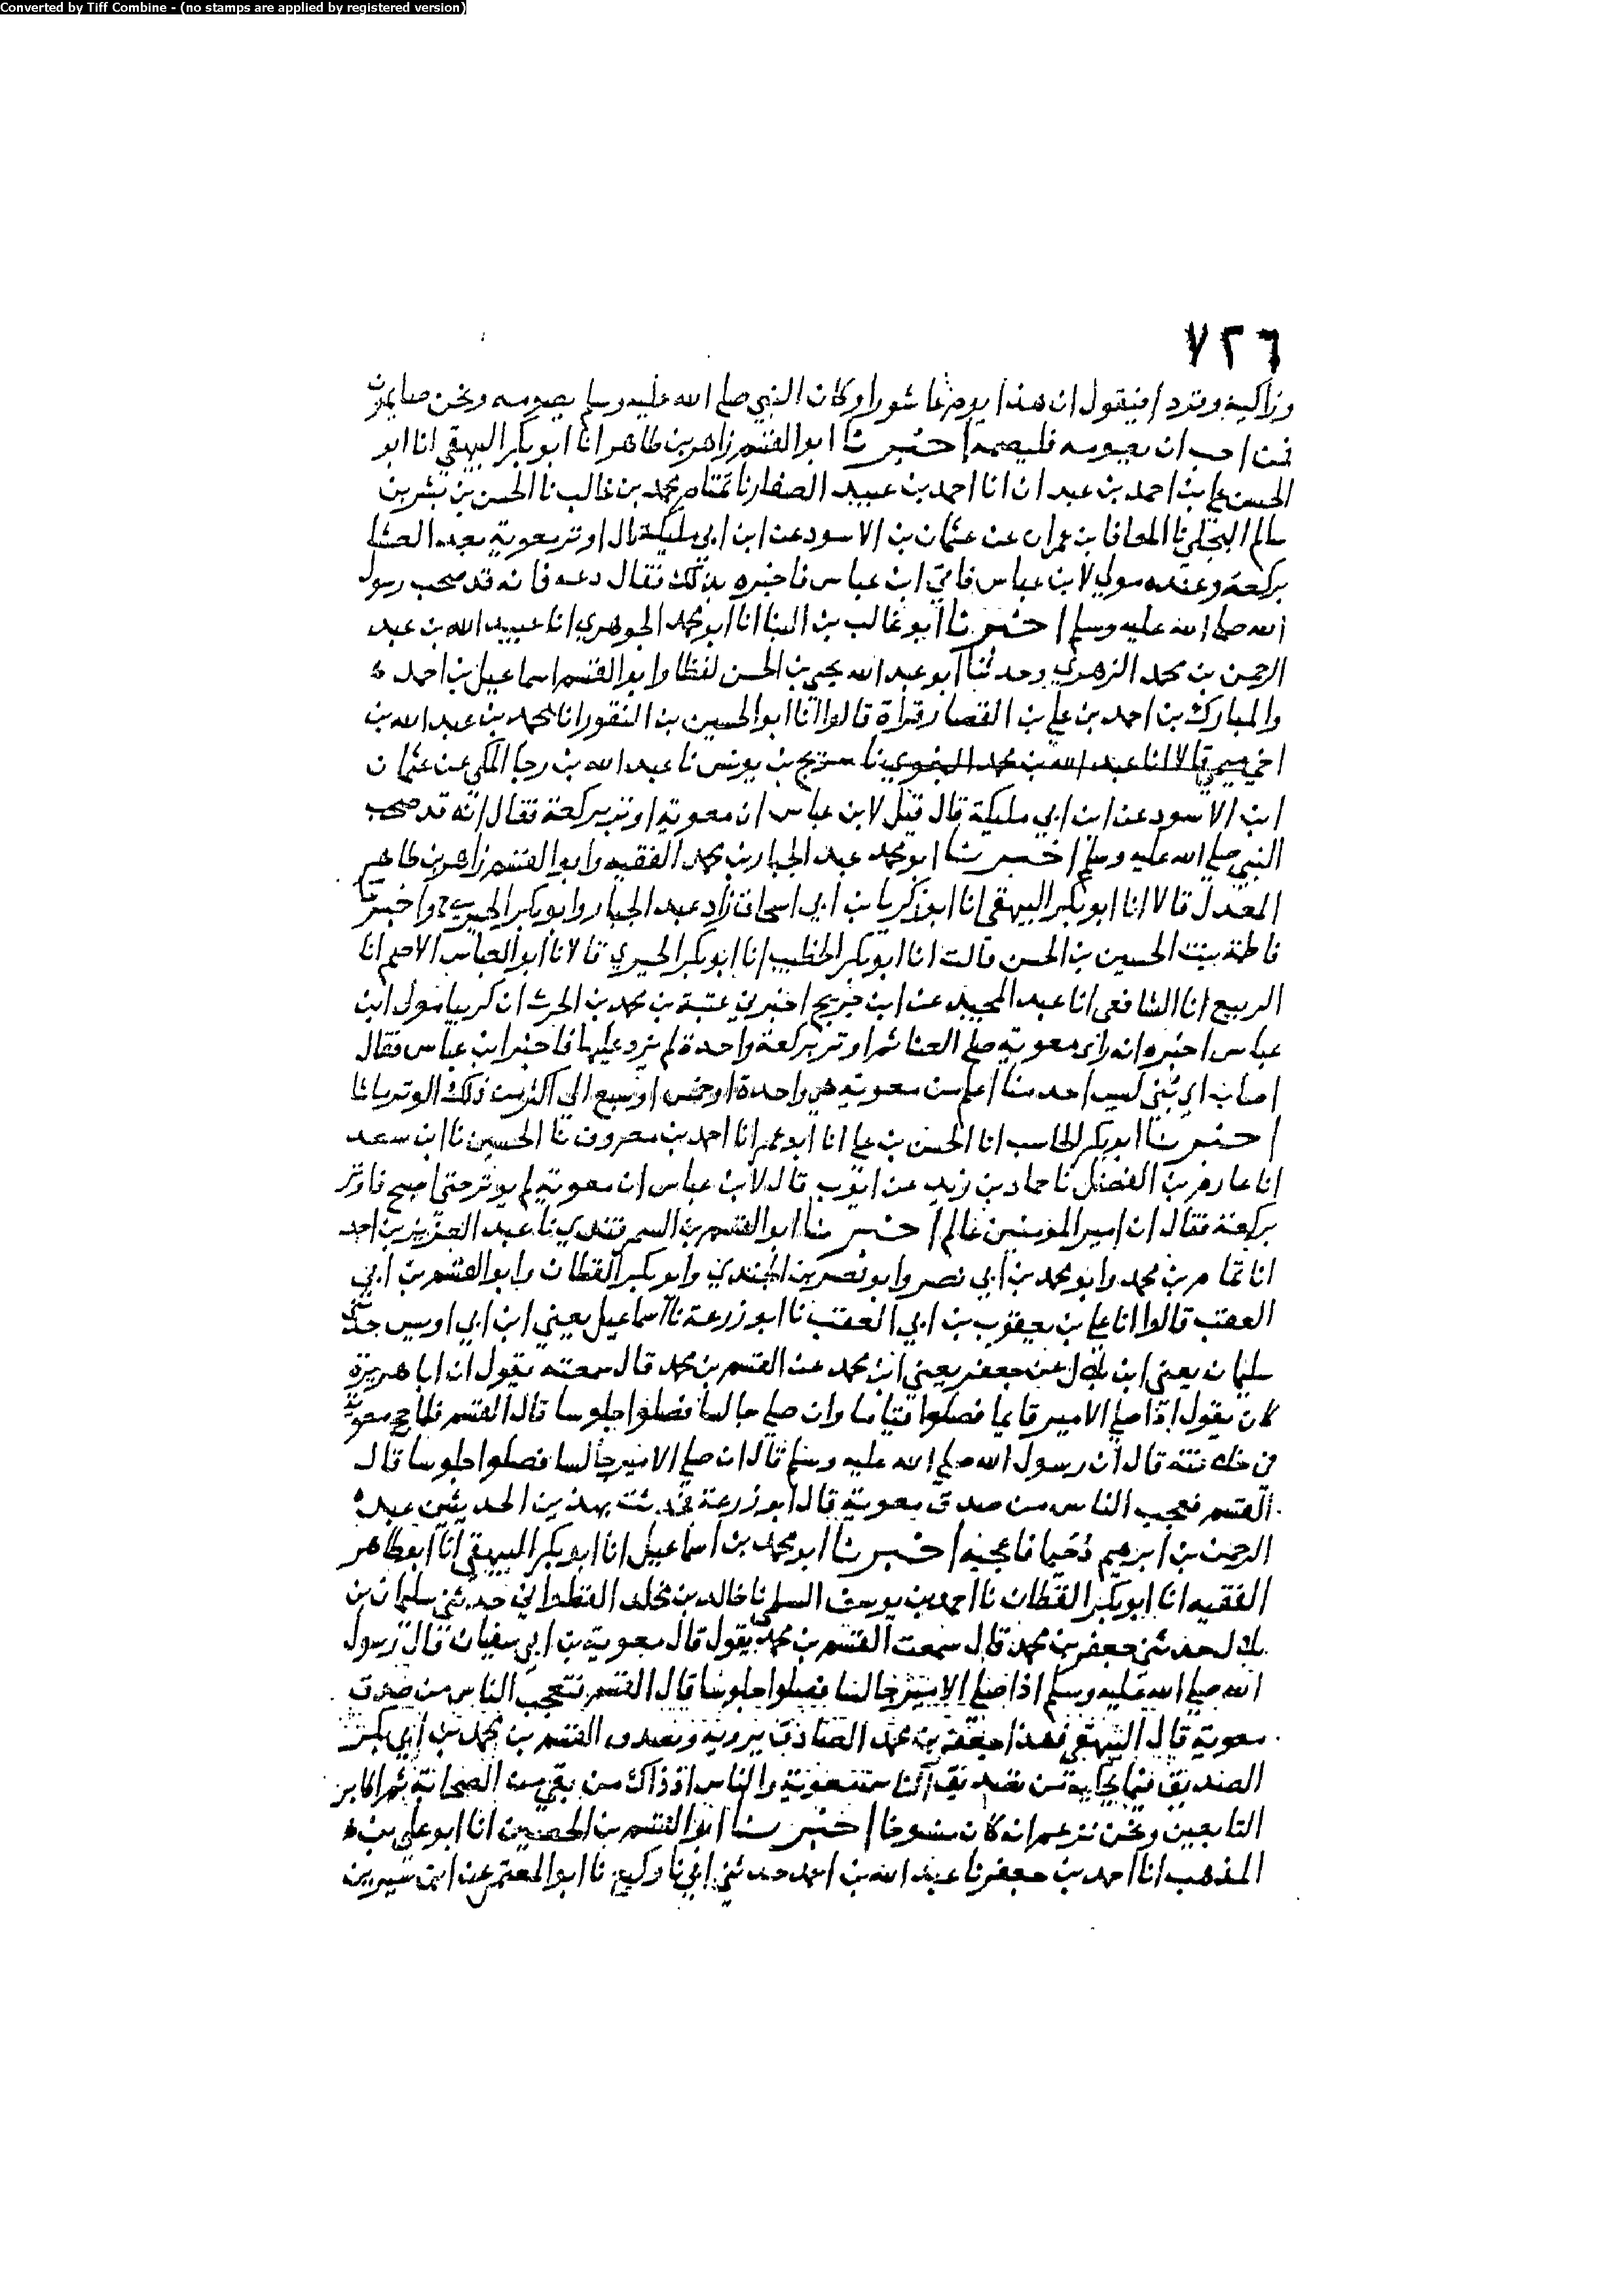 Converted by Tiff Combine - (no stamps are applied by registered version)
٧٢٦
فيقول ان هذا يوم عاشورا وكان النبي صلى الله عليه وسلم يصومه ونحن صايمون
فمن احب ان يصومه فليصمه اخبرنا ابو القسم زاهر بن طاهر انا ابو بكر البيهقي انا ابو
الحسن علي بن احمد بن عبدان انا احمد بن عبيد الصفار نا تمتام محمد بن غالب نا الحسن بن بشر بن
سالم البجلي نا المعافا بن عمران عن عثمان بن الاسود عن ابن ابي مليكة قال اوتر معوية بعد العشا
بركعة وعنده مولى لابن عباس فاتى ابن عباس فاخبره بذلك فقال دعه فانه قد صحب رسول
الله صلى الله عليه وسلم اخبرنا ابو غالب بن البنا انا ابو محمد الجوهري انا عبيد الله بن عبد
الرحمن بن محمد الزهري وحدثنا ابو عبد الله يحيى بن الحسن لفظا وابو القسم اسماعيل بن احمد
والمبارك بن احمد بن علي بن القصار قراة قالوا انا ابو الحسين بن النقور انا محمد بن عبد الله بن
اخي ميمي قالا انا عبد الله بن محمد البغوي نا سريج بن يونس نا عبد الله بن رجا المكي عن عثمان
ابن الاسود عن ابن ابي مليكة قال قيل لابن عباس ان معوية اوتر بركعة فقال انه قد صحب
النبي صلى الله عليه وسلم اخبرنا ابو محمد عبد الجبار بن محمد الفقيه وابو القسم زاهر بن طاهر
المعدل قالا انا ابو بكر البيهقي انا ابو زكريا بن ابي اسحاق زاد عبد الجبار وابو بكر الحيري ح واخبرتنا
فاطمة بنت الحسين بن الحسن قالت انا ابو بكر الخطيب انا ابو بكر الحيري قالا نا ابو العباس الاصم انا
الربيع انا الشافعي انا عبد المجيد عن ابن جريج اخبرني عتبة بن محمد بن الحرث ان كريبا مولى ابن
عباس اخبره انه راى معوية صلى العشا ثم اوتر بركعة واحدة لم يزد عليها فاخبر ابن عباس فقال
اصاب اي بني ليس احد منا اعلم من معوية هي واحدة او خمس او سبع الى اكثر من ذلك الوتر ماشا
اخبرنا ابو بكر الحاسب انا الحسن بن علي انا ابو عمر انا احمد بن معروف نا الحسين نا ابن سعد
انا عارم بن الفضل نا حماد بن زيد عن ايوب قال لابن عباس ان معوية لم يوتر حتى اصبح فاوتر
بركعة فقال ان امير المومنين عالم اخبرنا ابو القسم بن السمرقندي نا عبد العزيز بن احمد
انا تمام بن محمد وابو محمد بن ابي نصر وابو نصر بن الجندي وابو بكر القطان وابو القسم بن ابي
العقب قالوا انا علي بن يعقوب بن ابي العقب نا ابو زرعة نا اسماعيل يعني ابن ابي اويس حدثني
سليمان يعني ابن بلال عن جعفر يعني ابن محمد عن القسم بن محمد قال سمعته يقول ان ابا هريرة
كان يقول اذا صلى الامير قايما فصلوا قياما وان صلى جالسا فصلوا جلوسا قال القسم فلما حج معوية
قال ان رسول الله صلى الله عليه وسلم قال ان صلى الامير جالسا فصلوا جلوسا قال
القسم فعجب الناس من صدق معوية قال ابو زرعة فحدثت بهذين الحديثين عبد
الرحمن بن ابرهيم دحيما فاعجبه اخبرنا ابو محمد بن اسماعيل انا ابو بكر البيهقي انا ابو طاهر
الفقيه انا ابو بكر القطان نا احمد بن يوسف السلمي نا خالد بن مخلد القطواني حدثني سليمان بن
بلال حدثني جعفر بن محمد قال سمعت القسم بن محمد يقول قال معوية بن ابي سفيان قال رسول
الله صلى الله عليه وسلم اذا صلى الامير جالسا فصلوا جلوسا قال القسم فتعجب الناس من صدق
معوية قال البيهقي فهذا جعفر بن محمد الصادق يرويه ويصدق القسم بن محمد بن ابي بكر
الصديق فيما يحكيه من تصديق الناس معوية والناس اذ ذاك من بقي من الصحابة ثم اكابر
التابعين ونحن نزعم انه كان منسوخا اخبرنا ابو القسم بن الحصين انا ابو علي بن
المذهب انا احمد بن جعفر نا عبد الله بن احمد حدثني ابي نا وكيع نا ابو المعتمر عن ابن سيرين